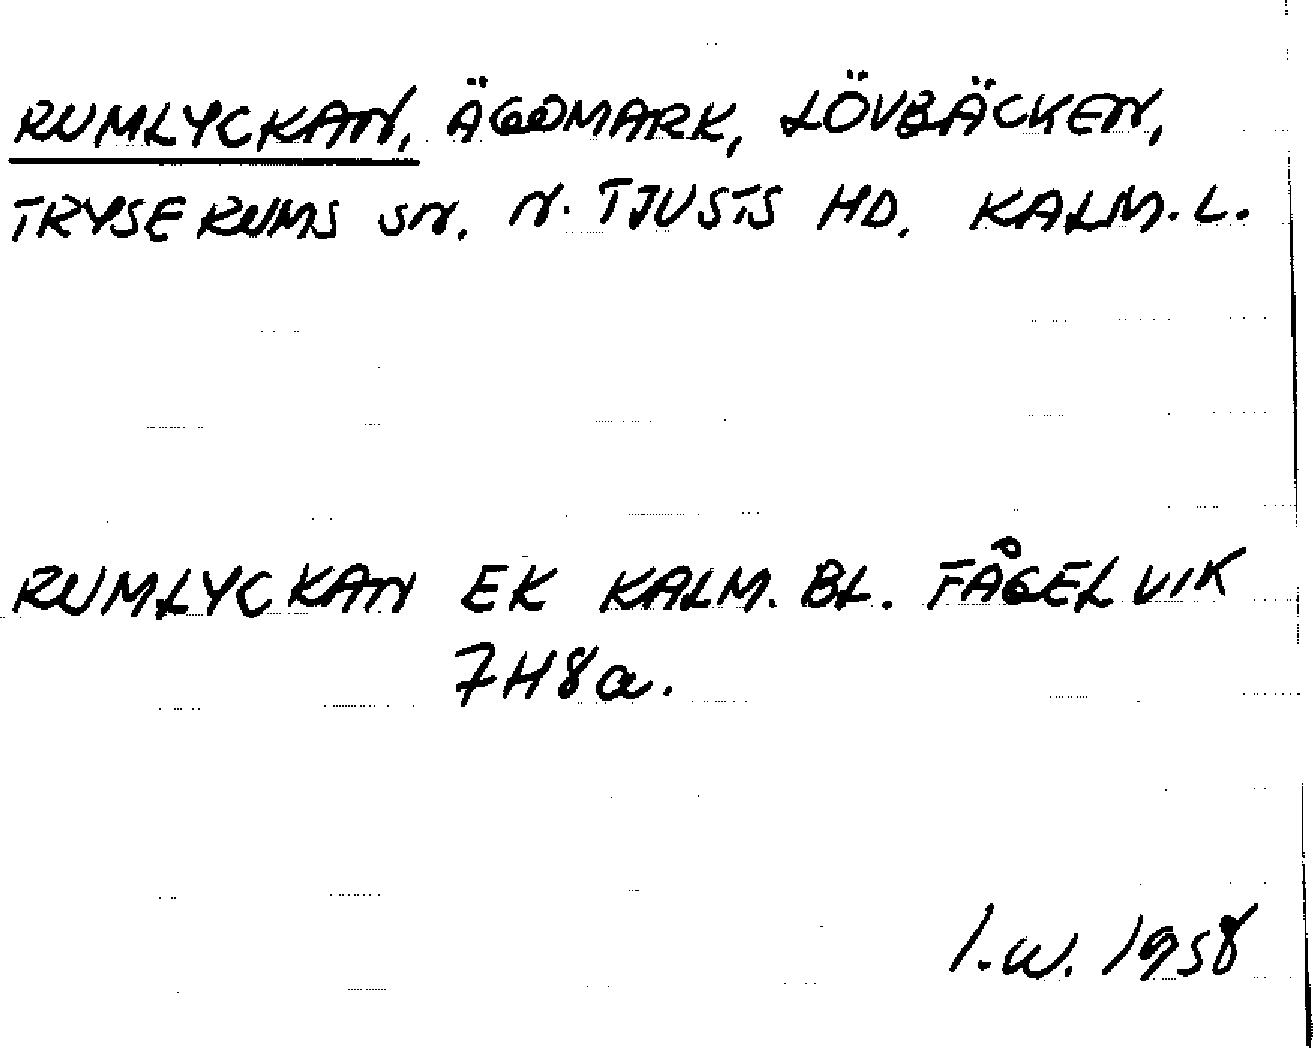 RUMLYCKAN, ÄGOMARK, LÖVBÄCKEN,
TRYSERUMS SN. N. TJUSTS HD. KALM. L.
RUMLYCKAN EK KALM. BL. FÅGELVIK
7H8a.
I.W. 1958